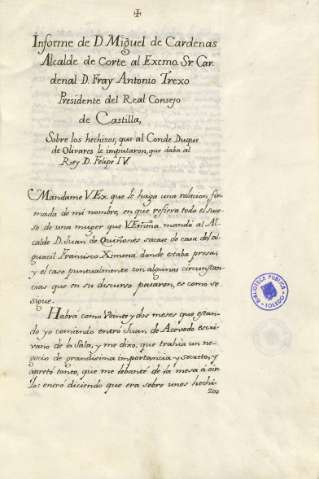 Informe de D. Miguel de Cardenas
Alcalde de Corte al Excmo. Sr. Car
denal D. Fray Antonio Trexo
Presidente del Real Consejo
de Castilla,
Sobre los hechizos, que al Conde Duque
de Olivares le imputaron, que daba al
Rey D. Felipe IV.
Mandame V.Ex. que le haga una relacion, fir
mada de mi nombre, en que refiera todo el suce
so de una muger que V. Emi͠na. mandó al Al
calde D. Juan de Quiñones sacase de casa del al
guacil Francisco Ximena donde estaba presa,
y el caso puntualmente con algunas circunstan
cias que en su discurso pasaron, es como se
sigue.
Habrá como Veinte y dos meses que estan
do yo comiendo entró Juan de Acevedo escri
vano de la Sala, y me dixo, que trahia un ne
gocio de grandisima importancia y secreto, y
apretó tanto, que me lebanté de la mesa á oir
los entró diciendo que era sobre unos hechi
zos
BIBLIOTECA PUBLICA
TOLEDO